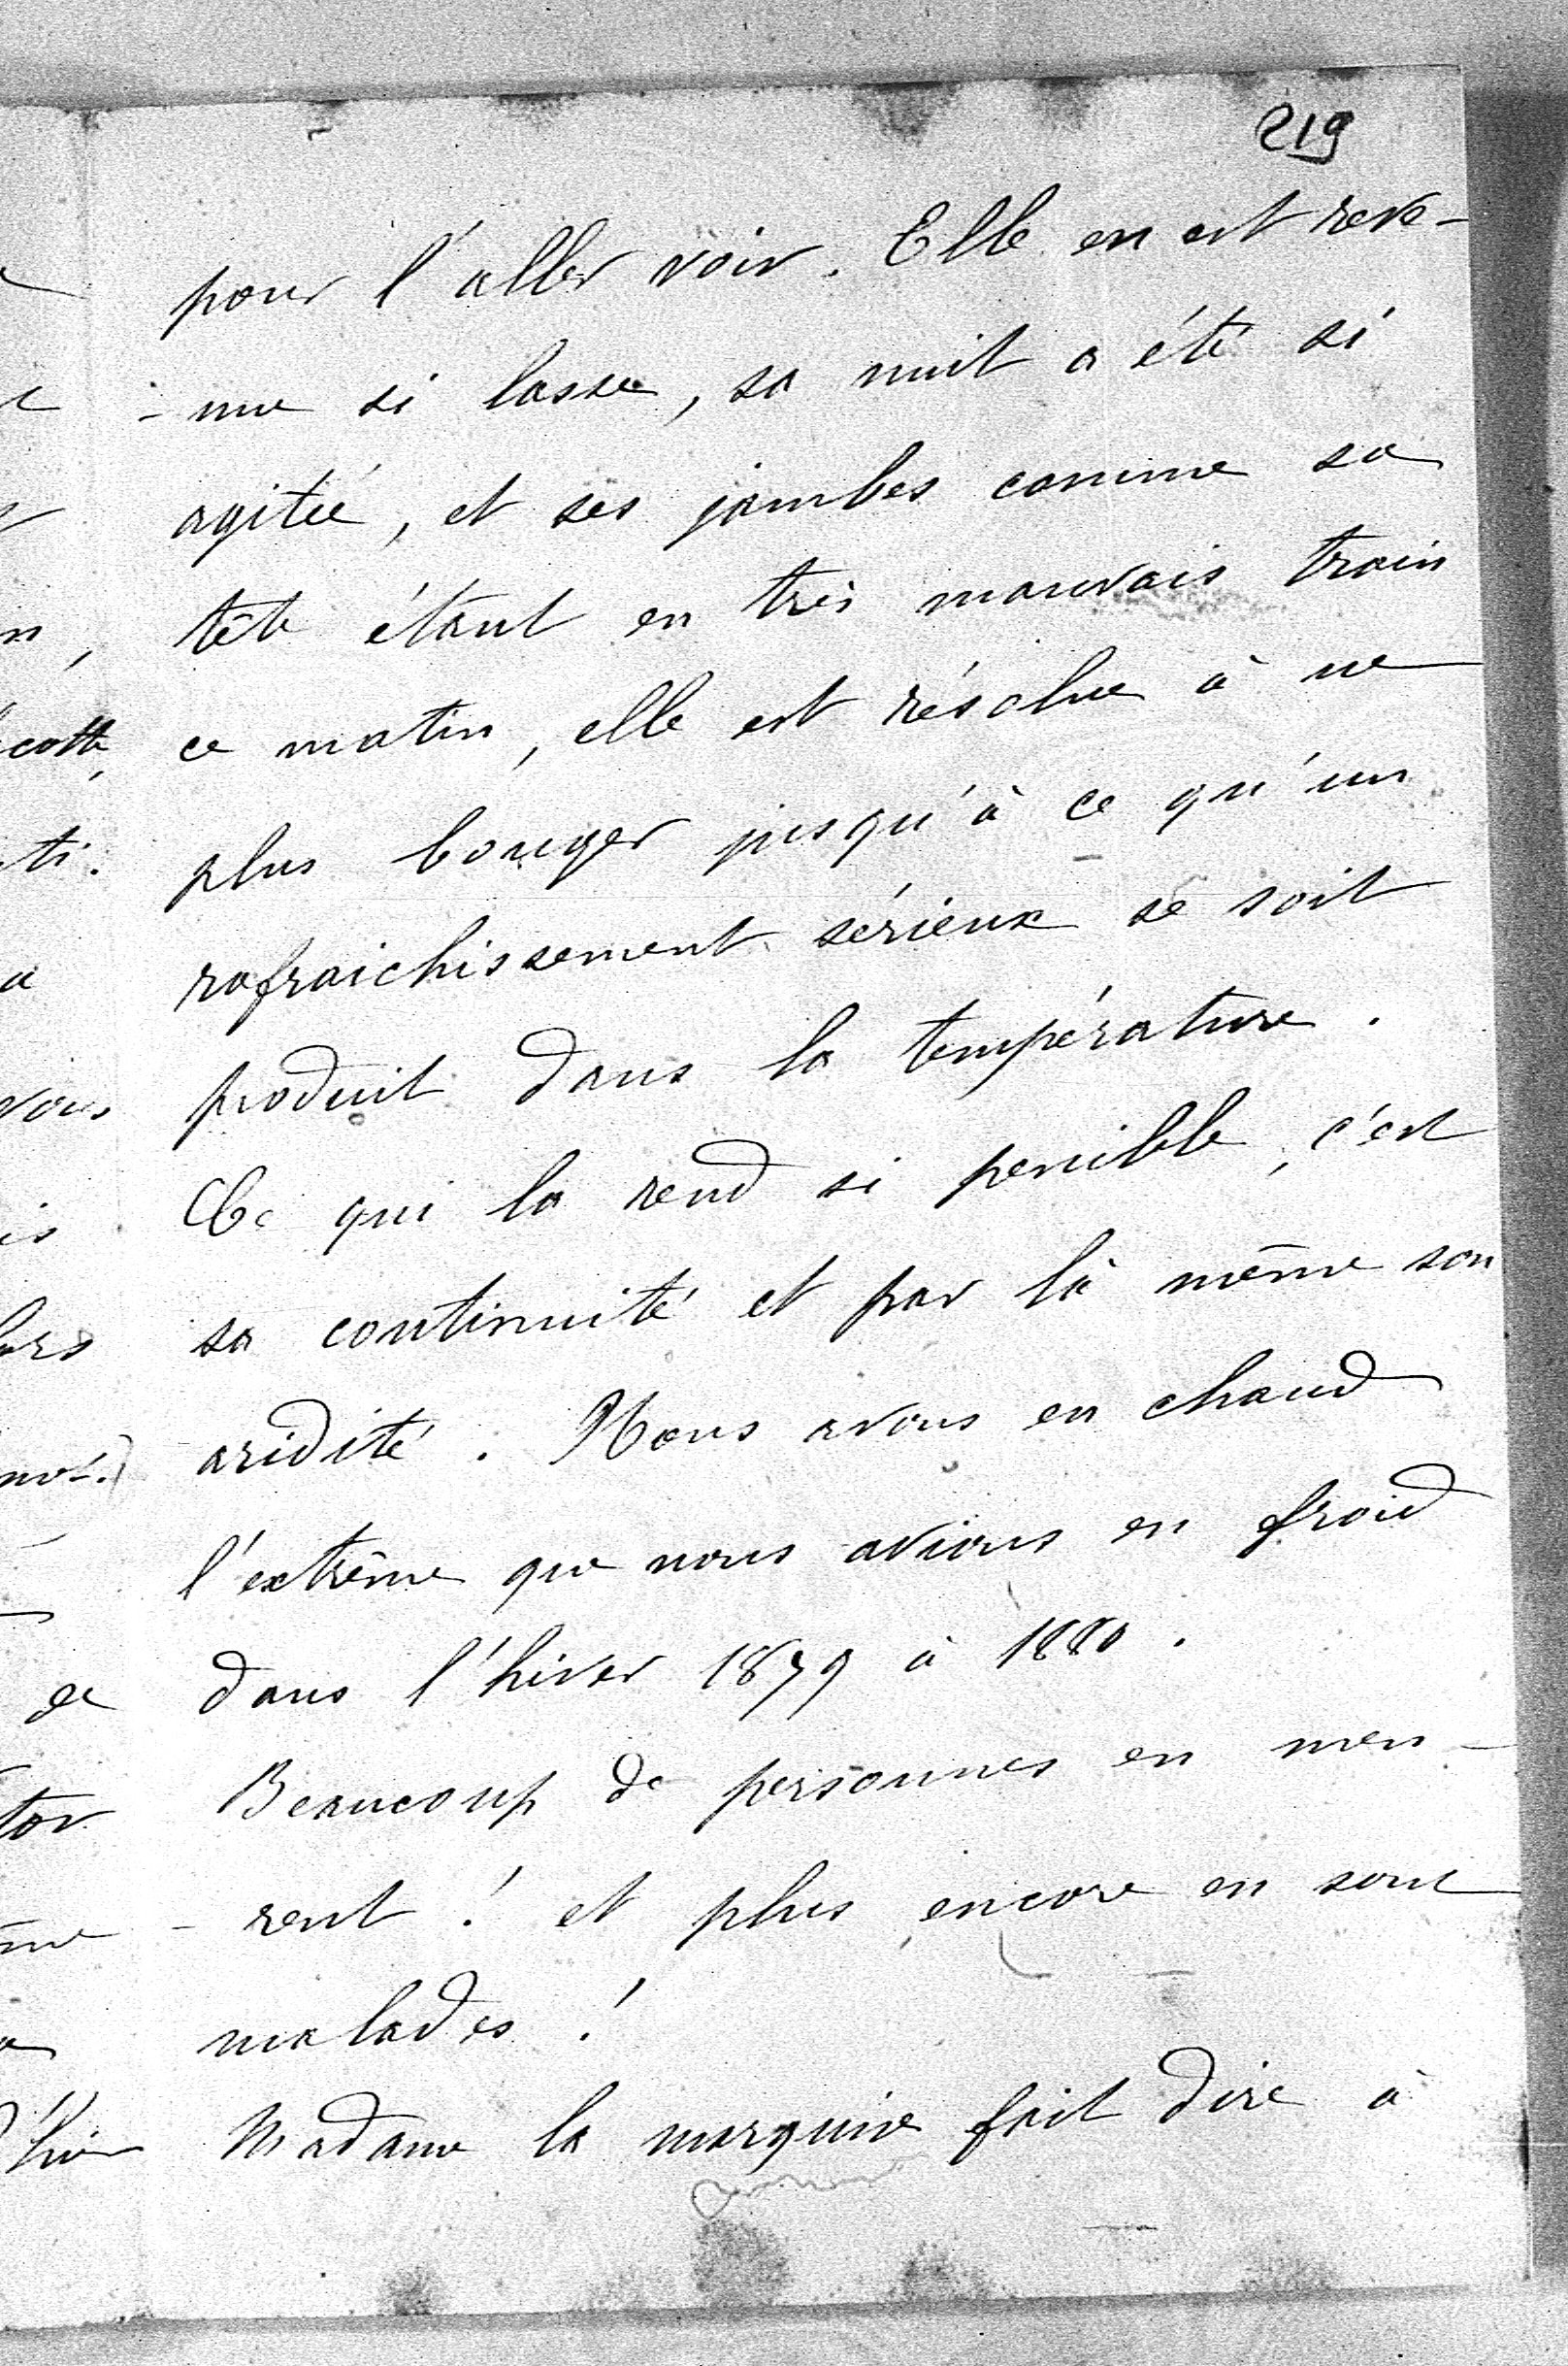 219
pour l'aller voir. Elle en est reve-
-nue si lasse, sa nuit a été si
agitée, et ses jambes comme sa
tête étant en très mauvais train
ce matin, elle est résolue à ne
plus bouger jusqu'à ce qu'un
rafraichissement sérieux se soit
produit dans la température.
Ce qui la rend si penible, c'est
sa continuité et par là même son
aridité. Nous avons en chaud
l'extrême que nous avions en froid
dans l'hiver 1879 à 1880.
Beaucoup de personnes en meu-
-rent! et plus encore en sont
malades!
Madame la marquise fait dire à